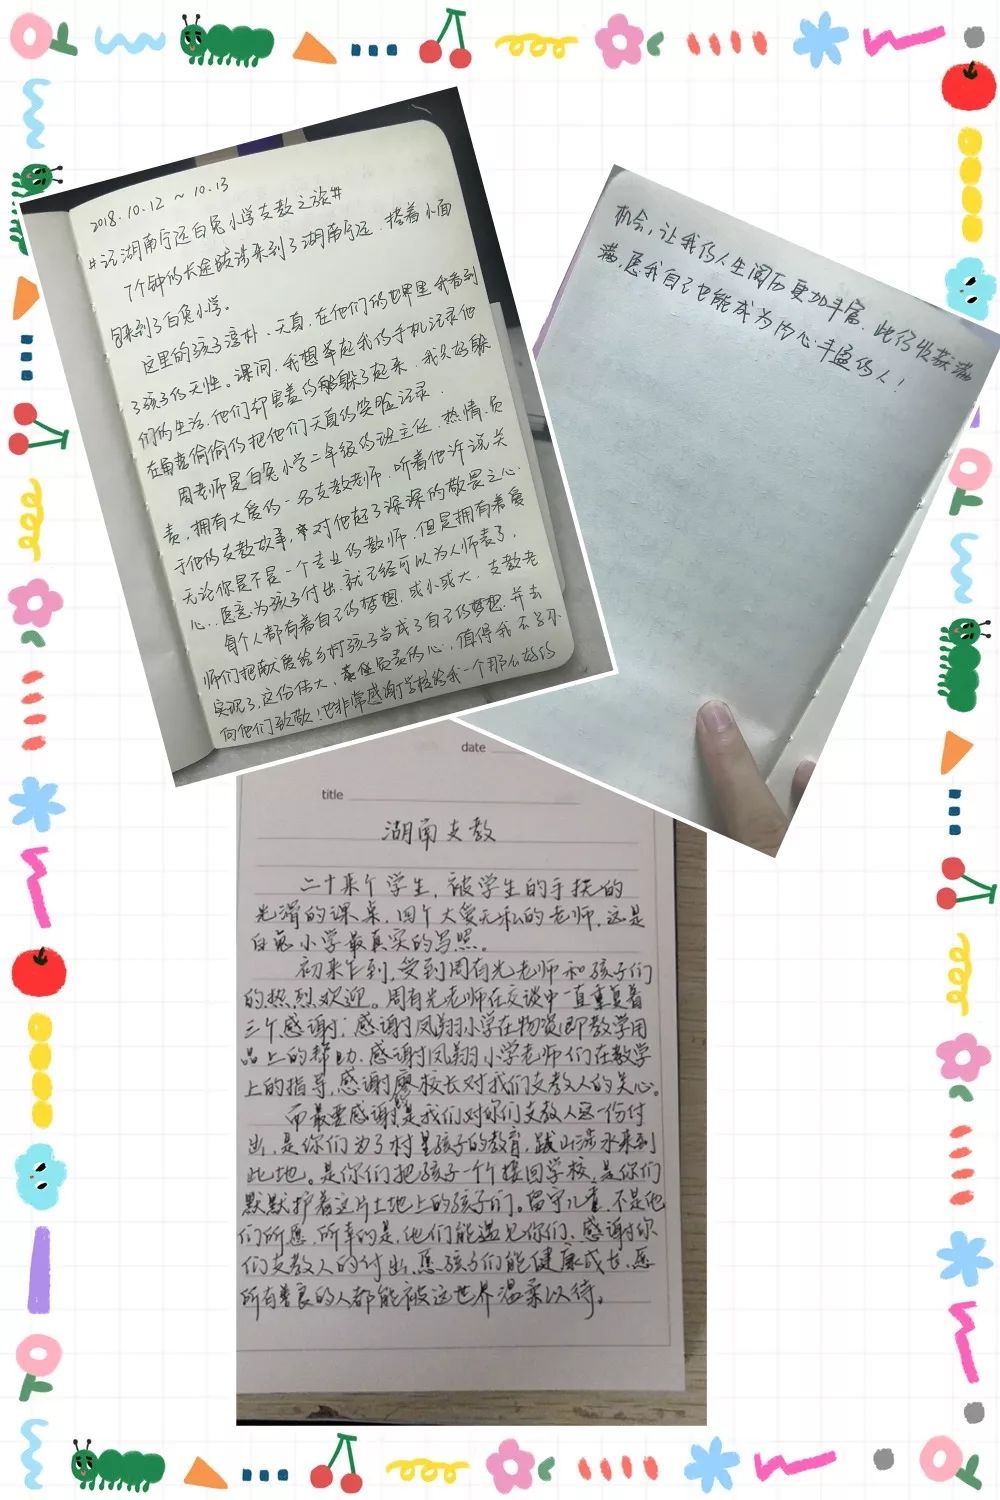 2018.10.12 ~ 10.13
#记湖南宁远白兔小学支教之旅#
7个钟的长途跋涉来到了湖南宁远，搭着小面
包来到了白兔小学。
这里的孩子淳朴、天真，在他们的世界里我看到
了孩子的天性。课间，我想举起我的手机记录他
们的生活，他们却害羞的躲了起来，我只好躲
在角落偷偷的把他们天真的笑脸记录.
周老师是白兔小学二年级的班主任，热情、负
责，拥有大爱的一名支教老师，听着他诉说关
于他的支教故事，对他起了深深的敬畏之心.
无论你是不是一个专业的教师，但是拥有着爱
心，愿意为孩子付出，就已经可以为人师表了.
每个人都有着自己的梦想，或小或大，支教老
师们把献爱给乡村孩子当成了自己的梦想，并去
实现了，这份伟大、负责的心，值得我
向他们致敬！也非常感谢学校给我一个那么好的
机会，让我的人生阅历更加丰富，此行收获满
满，愿我自己也能成为内心丰盈的人！
date
title
湖南支教
二十来个学生，被学生的手扶的
光滑的课桌，四个大爱无私的老师，这是
白兔小学最真实的写照。
初来乍到，受到周有光老师和孩子们
的热烈欢迎。周有光老师在交谈中一直重复着
三个感谢：感谢凤翔小学在物资即教学用
品上的帮助，感谢凤翔小学老师们在教学
上的指导，感谢廖校长对我们支教人的关心。
而最要感谢的是我们对你们支教人这一份付
出，是你们为了村里孩子的教育，跋山涉水来到
此地。是你们把孩子一个个接回学校，是你们
默默护着这片土地上的孩子们。留守儿童，不是他
们所愿，所幸的是，他们能遇见你们，感谢你
们支教人的付出，愿孩子们能健康成长，愿
所有善良的人都能被这世界温柔以待。